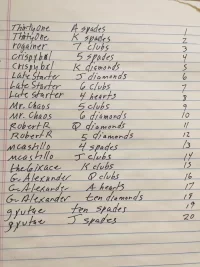 ThirtyOne A spades 1
ThirtyOne K spades 2
rogainer 7 clubs 3
Crispybxl 5 spades 4
Crispybxl K diamonds 5
LateStarter J diamonds 6
LateStarter 6 clubs 7
LateStarter 4 hearts 8
Mr. Chaos 5 clubs 9
Mr. Chaos 6 diamonds 10
Robert R Q diamonds 11
Robert R 5 diamonds 12
mcashllo 4 spades 13
mcashllo J clubs 14
the6ixace K clubs 15
G. Alexander Q clubs 16
G. Alexander A hearts 17
G. Alexander ten diamonds 18
gyutae ten spades 19
gyutae J spades 20